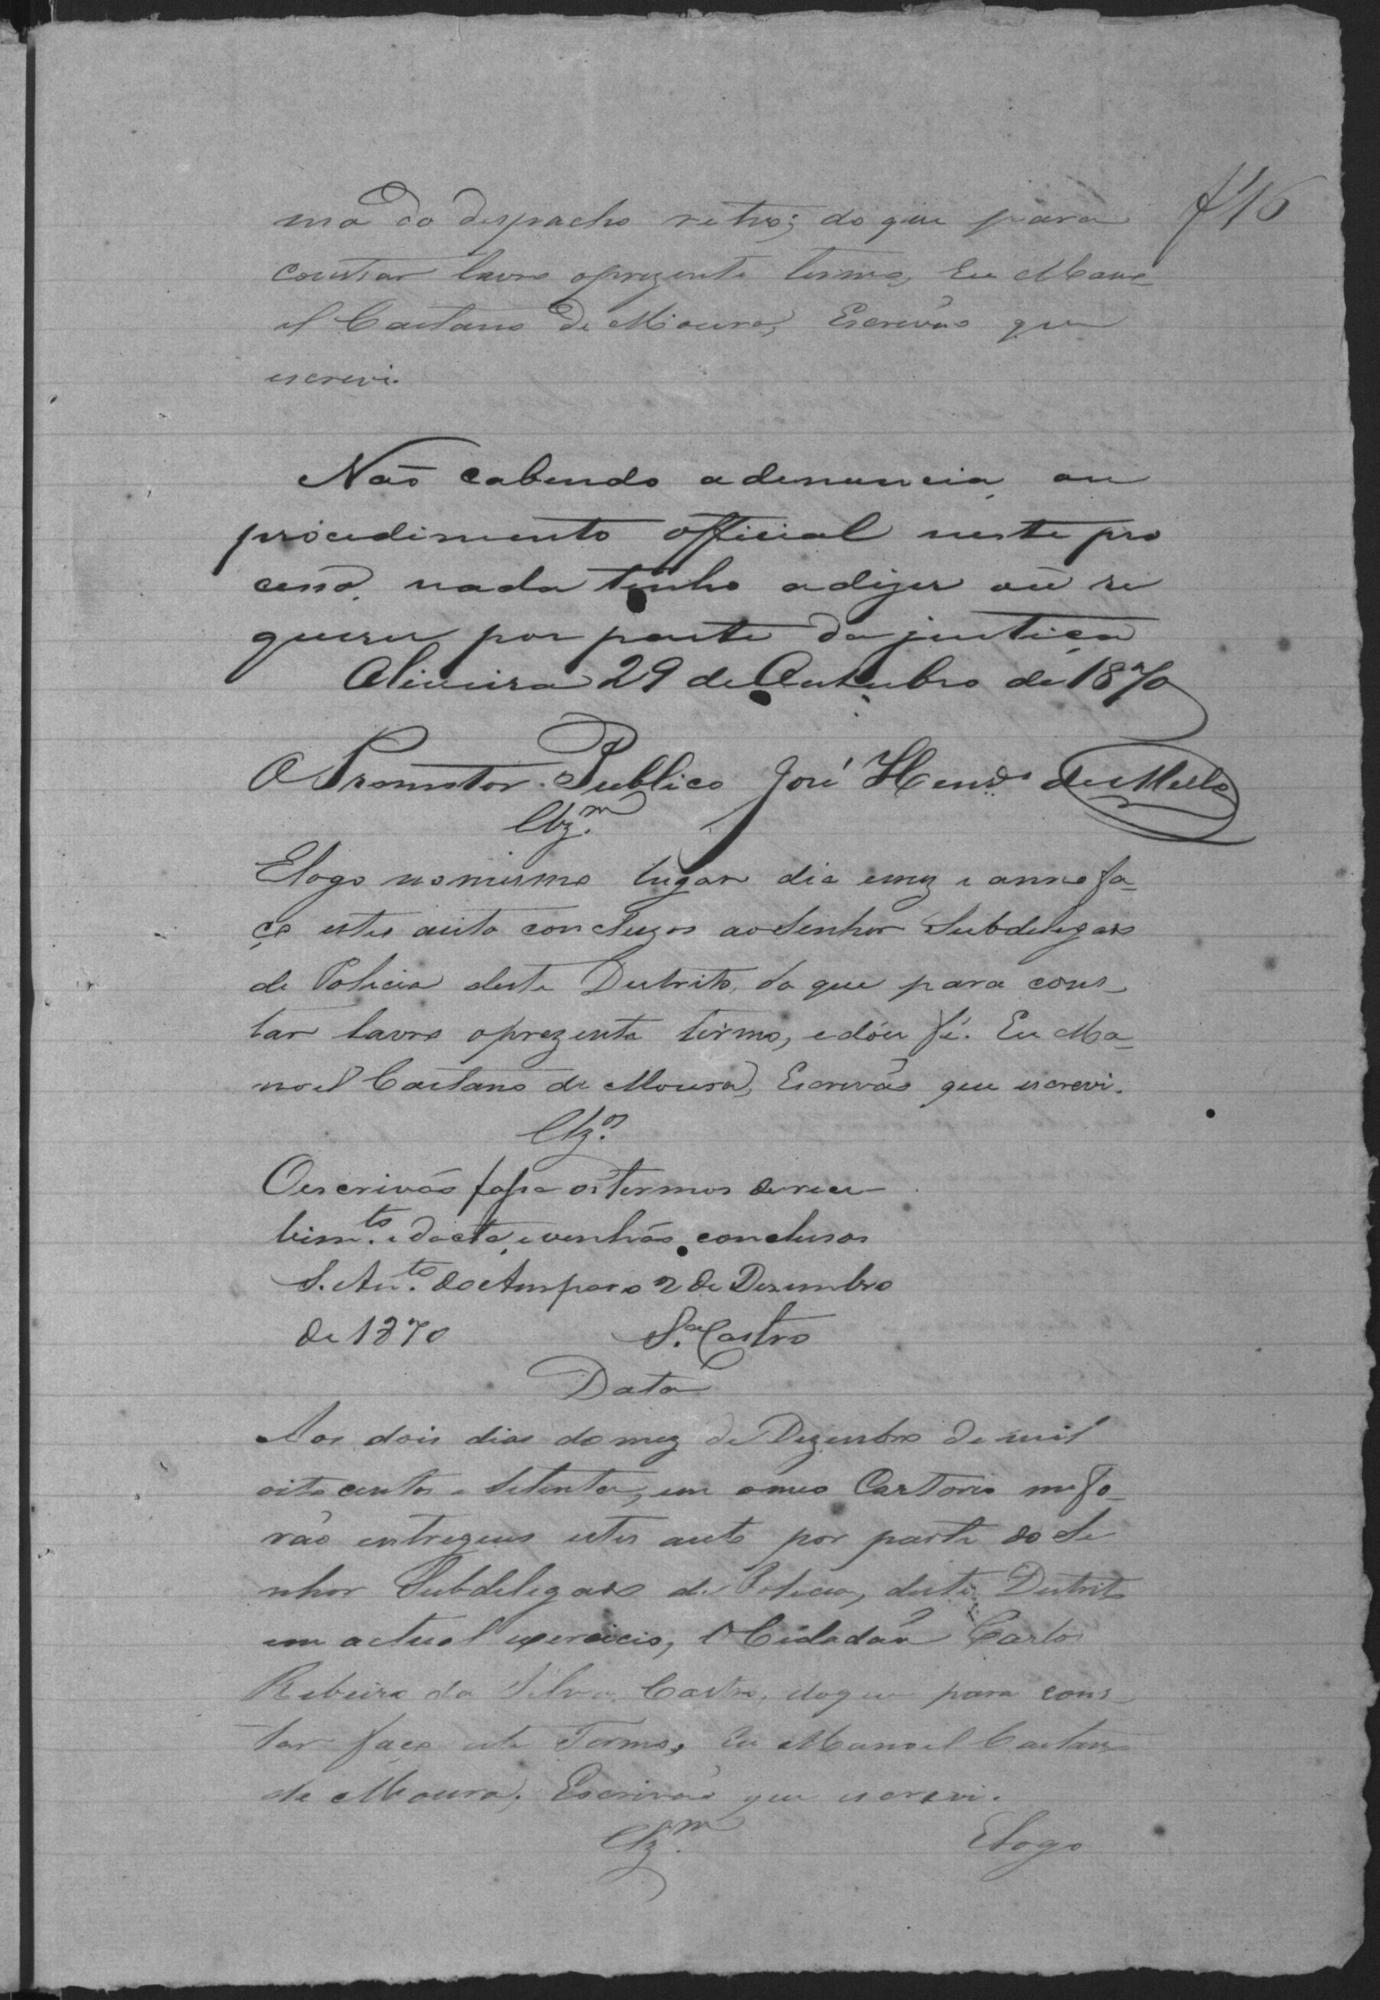 f 16
ma do despacho retro; do que para
constar lavro oprezente termo, Eu Mano-
el Caetano de Moura, Escrivão que
escrevi.
Não cabendo a denuncia ou
procedimento official neste pro
cesso, nada tenho a dizer ou re
querer por parte da justiça
Oliveira 29 de Outubro de 1870
O Promotor Publico José Henr.es de Mello
Clz.m
Elogo nomesmo lugar dia emez e anno fa-
ço estes auto concluzos ao Senhor Subdelegado
de Policia deste Destrito, do que para cons-
tar lavro oprezente termo, edou fé. Eu Ma-
noel Caetano de Moura, Escrivão que escrevi.
Clz.m
Oescrivão fassa os termos de rece
bim.to e data, e venhão conclusos
S. An.to do Amparo 2 de Dezembro
de 1870 S.a Castro
Data
Aos dois dias do mez de Dezembro de mil
oito centos e setenta, em omeo Cartorio me fo-
rão entregeus estes auto por parte do Se
nhor Subdelegado de Policia, deste Destrito
em actual exercicio, o Cidadão Carlos
Ribeiro da Silva Castro, doque para cons-
tar faço este Termo, Eu Manoel Caetano
de Moura, Escrivão que escrevi.
Clz.m Elogo